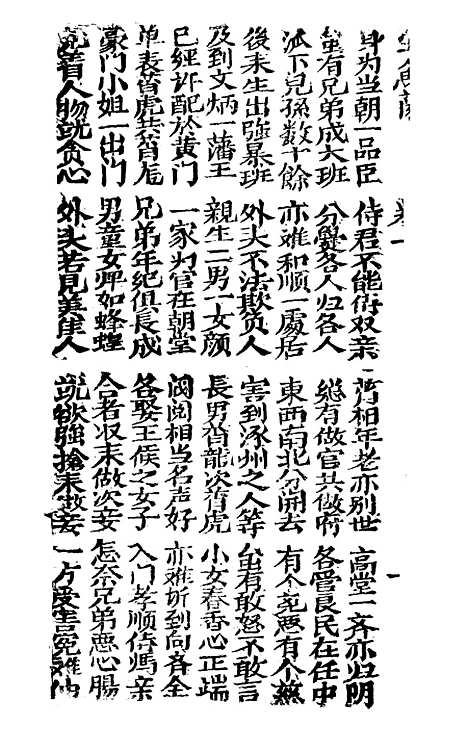 卷一 一
身为当朝一品臣 侍君不能侍双亲 相年老亦别世 高堂一齐亦归阴
虽有兄弟成大班 分爨各人归各人 总有做官共做府 各管良民在任中
派下兒孫数十餘 亦难和顺一處居 東西南北分開去 有个忠恶有个
後来生出强暴班 外头不法欺负人 害到涿州之人等 虽有敢怒不敢言
及到文炳一藩王 親生二男一女顔 長男首龍次首虎 小女春香心正端
已經许配於黄门 一家为官在朝堂 阀阅相当名声好 亦难折到向各全
单表首虎共首 兄弟年纪俱長成 各娶王侯之女子 入门孝顺侍妈亲
豪门小姐一出门 男童女婢如蜂螳 合者収来做次妾 怎奈兄弟恶心腸
見着人物就贪心 外头若見美佳人 就欲强搶来做妾 一方受害冤难伸